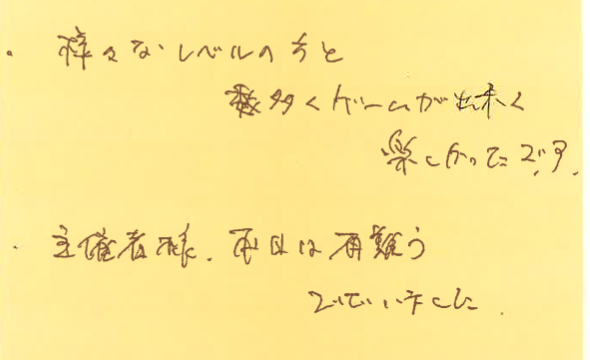 ・様々なレベルの方と
数多くゲームが出来く
楽しかったです.
・主催者様.本日は有難う
ございました.